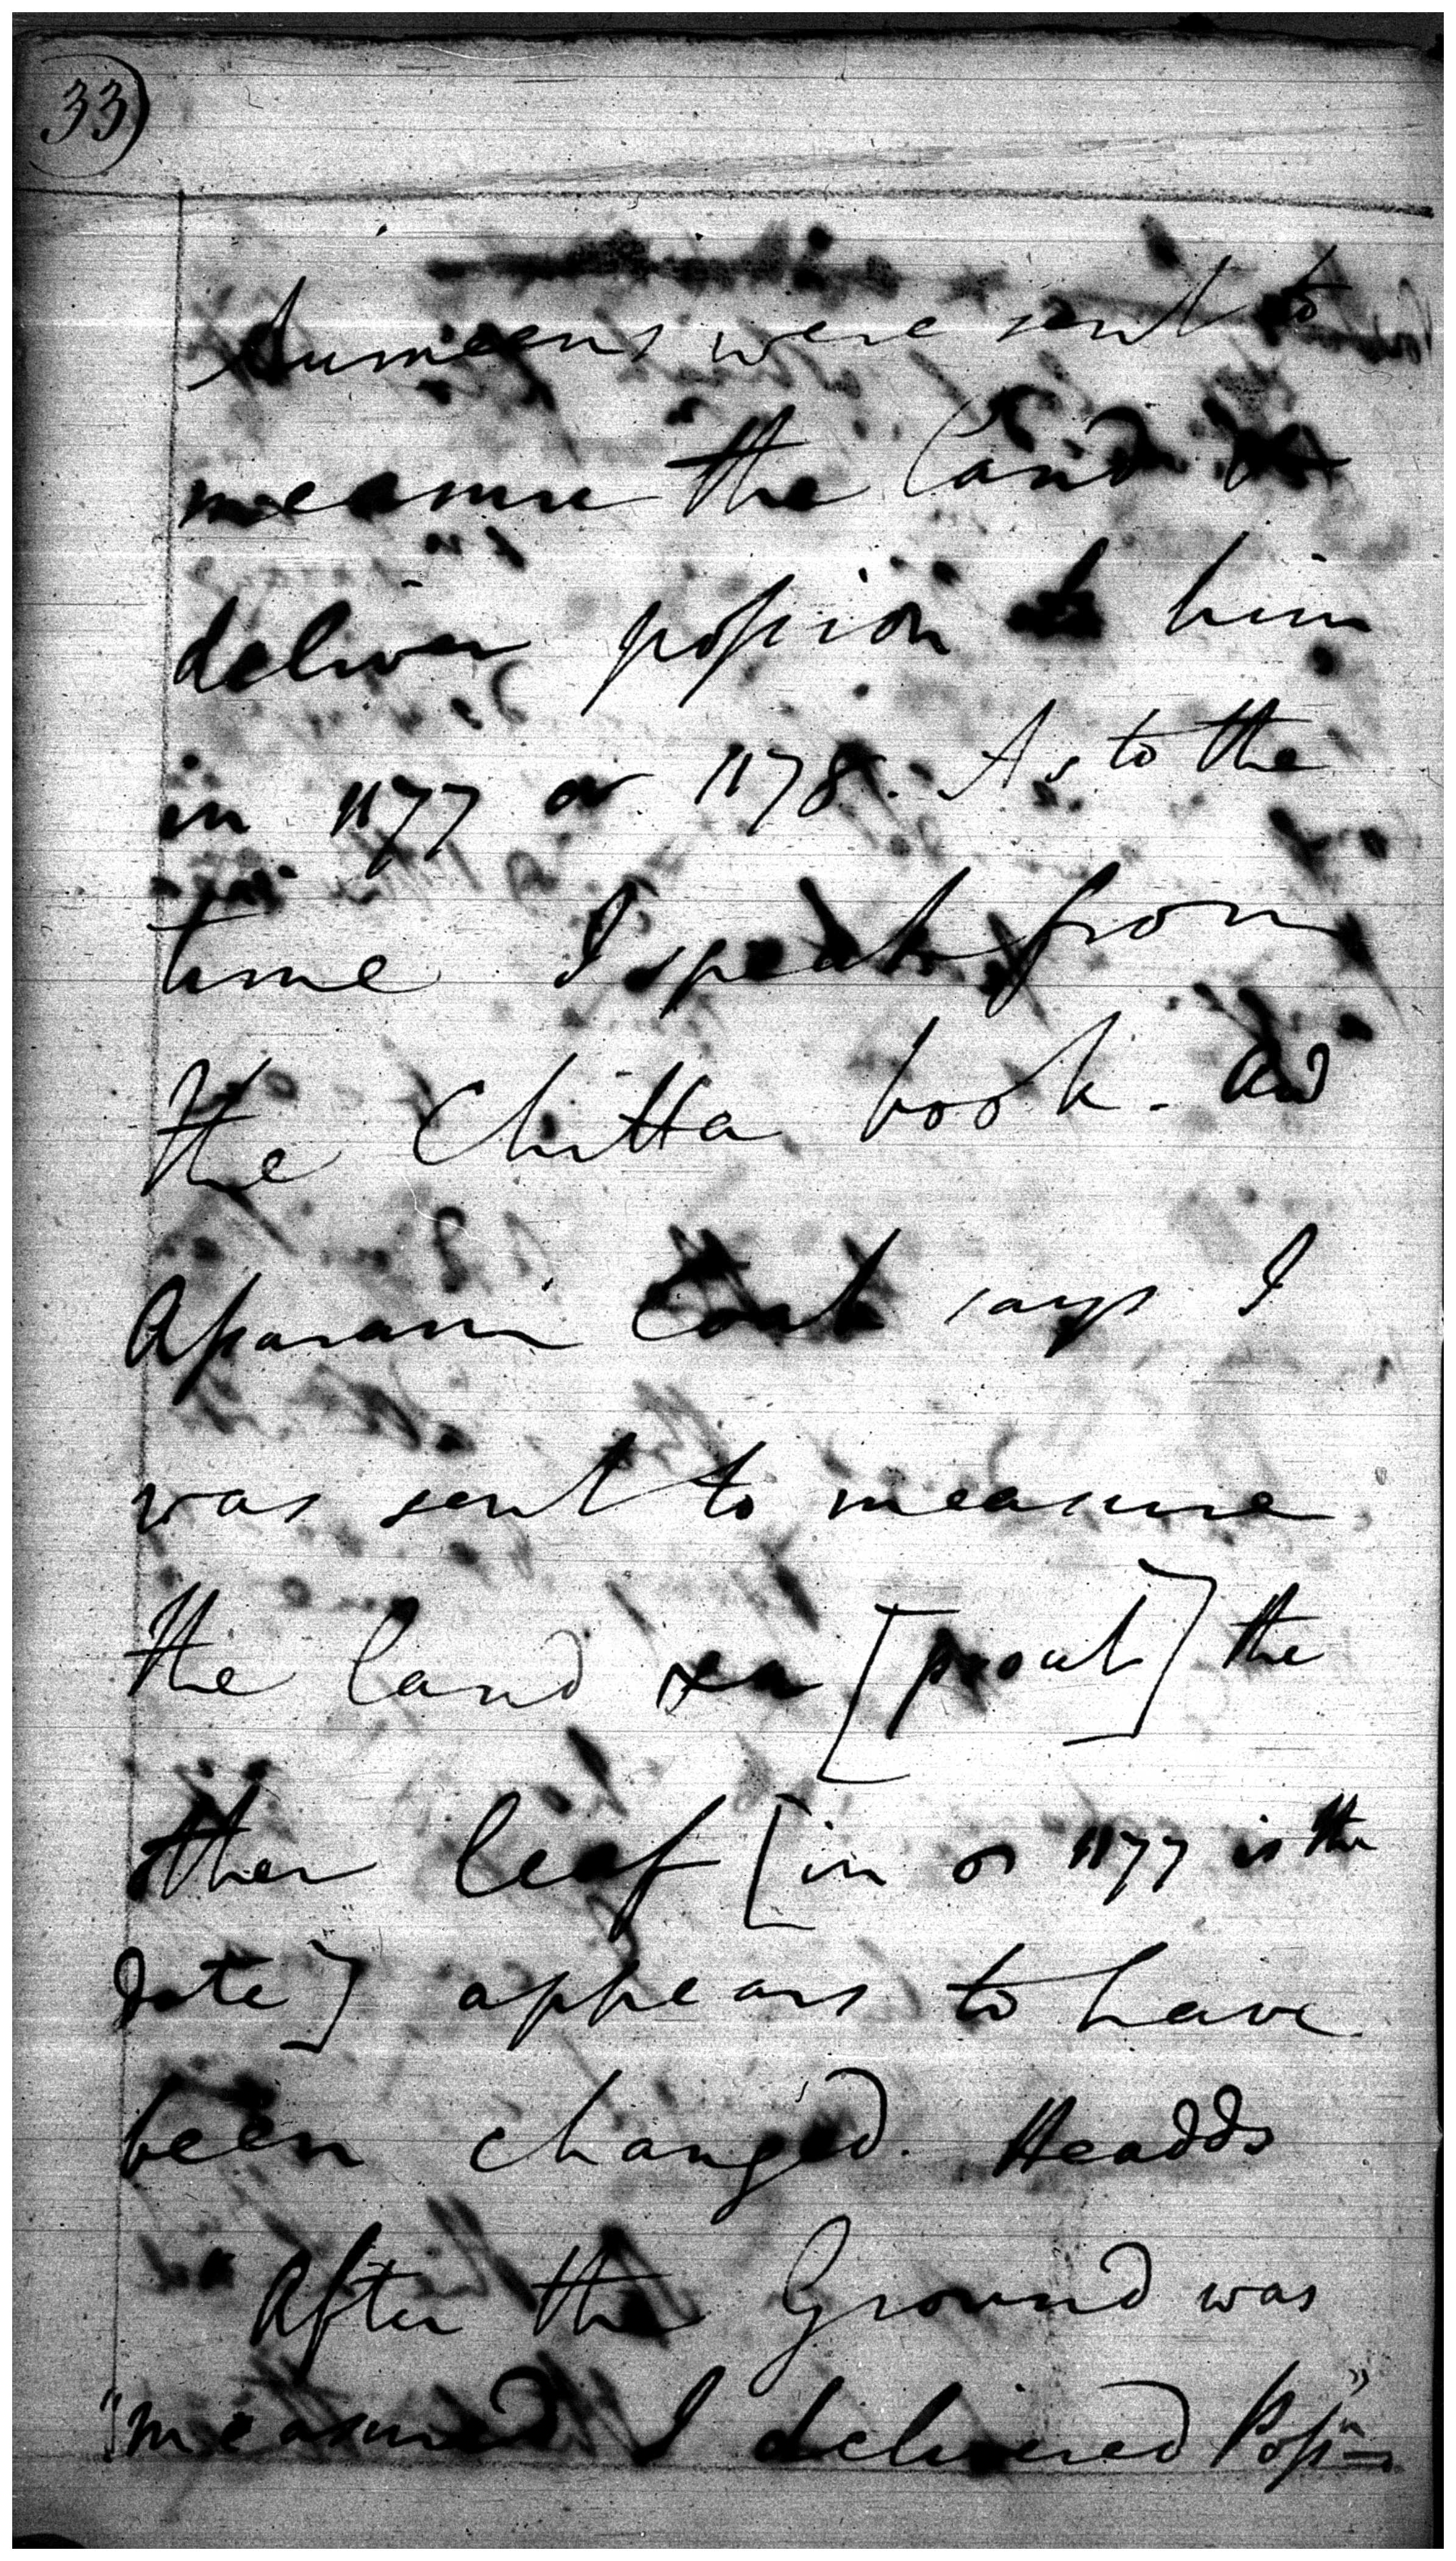 33)
Aumeens were sent to
measure the land &
deliver possion to him
in 1177 or 1178. As to the
time I speak from
the Chitta book. and
Aparam says I
was sent to measure
the land [ ] the
other leaf [in or 1177 is the
date] appears to have
been changed. He adds
"After the Ground was
"measured I delivered Possn"